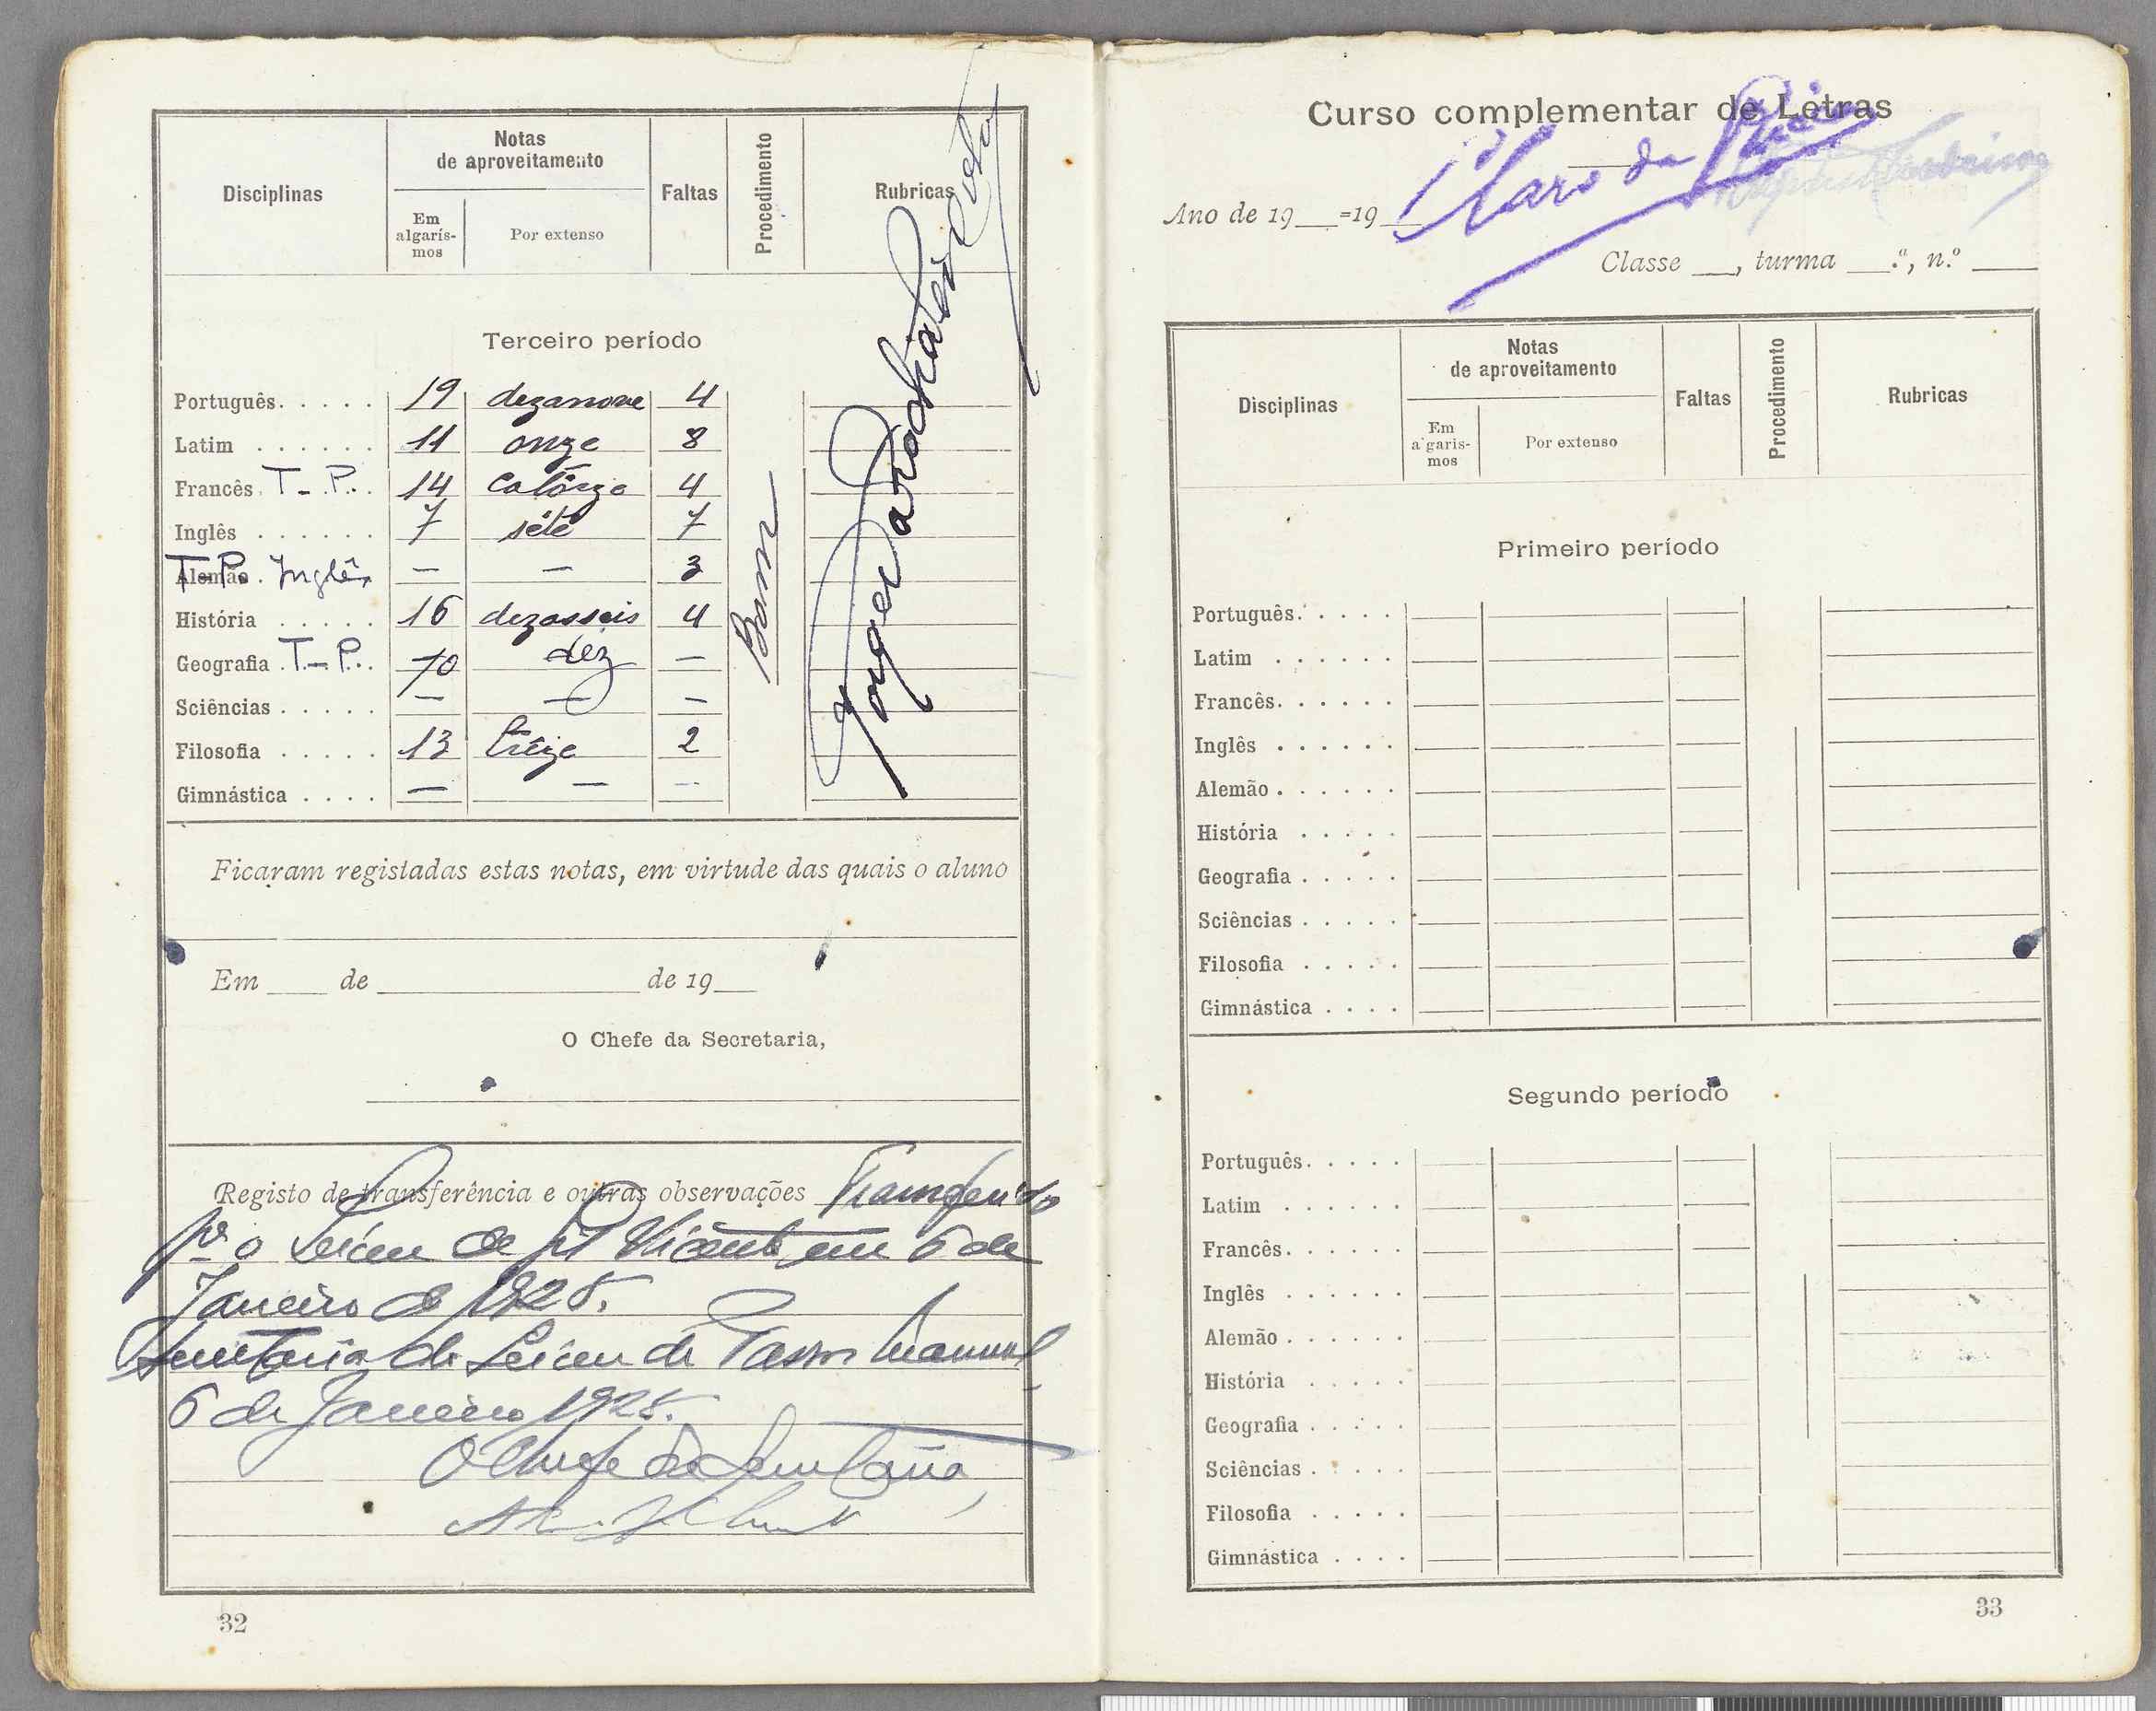 Disciplinas
Notas
de aproveitamento
Em
algarís-
mos
Por extenso
Faltas
Procedimento
Rubricas
Terceiro período
Português. . . . . 19 dezanove 4
Latim . . . . . . 11 onze 8
Francês T-P. . . 14 catôrze 4
Inglês . . . . . . 7 séte 7
Alemão . T-P. Inglês — — 3
História . . . . . 16 dezasseis 4
Geografia . T-P. . . 10 dez —
Sciências . . . . . — — —
Filosofia . . . . . 13 trêze 2
Gimnástica . . . . — — —
Bom
Ficaram registadas estas notas, em virtude das quais o aluno
Em ____ de ____ de 19__
O Chefe da Secretaria,
Registo de transferência e outras observações Transferido
pª o Liceu de Gil Vicente em 6 de
Janeiro de 1928.
Secretaria do Liceu de Passos Manuel
6 de Janeiro 1928.
O Chefe da Secretaria,
32
Curso complementar de Letras
Ano de 19__=19__
Classe __, turma __.ª, n.º ____
Disciplinas
Notas
de aproveitamento
Em
a garis-
mos
Por extenso
Faltas
Procedimento
Rubricas
Primeiro período
Português. . . . .
Latim . . . . . .
Francês. . . . . .
Inglês . . . . . .
Alemão . . . . . .
História . . . . .
Geografia . . . . .
Sciências . . . . .
Filosofia . . . . .
Gimnástica . . . .
Segundo período
Português. . . . .
Latim . . . . . .
Francês. . . . . .
Inglês . . . . . .
Alemão . . . . . .
História . . . . .
Geografia . . . . .
Sciências . . . . .
Filosofia . . . . .
Gimnástica . . . .
33